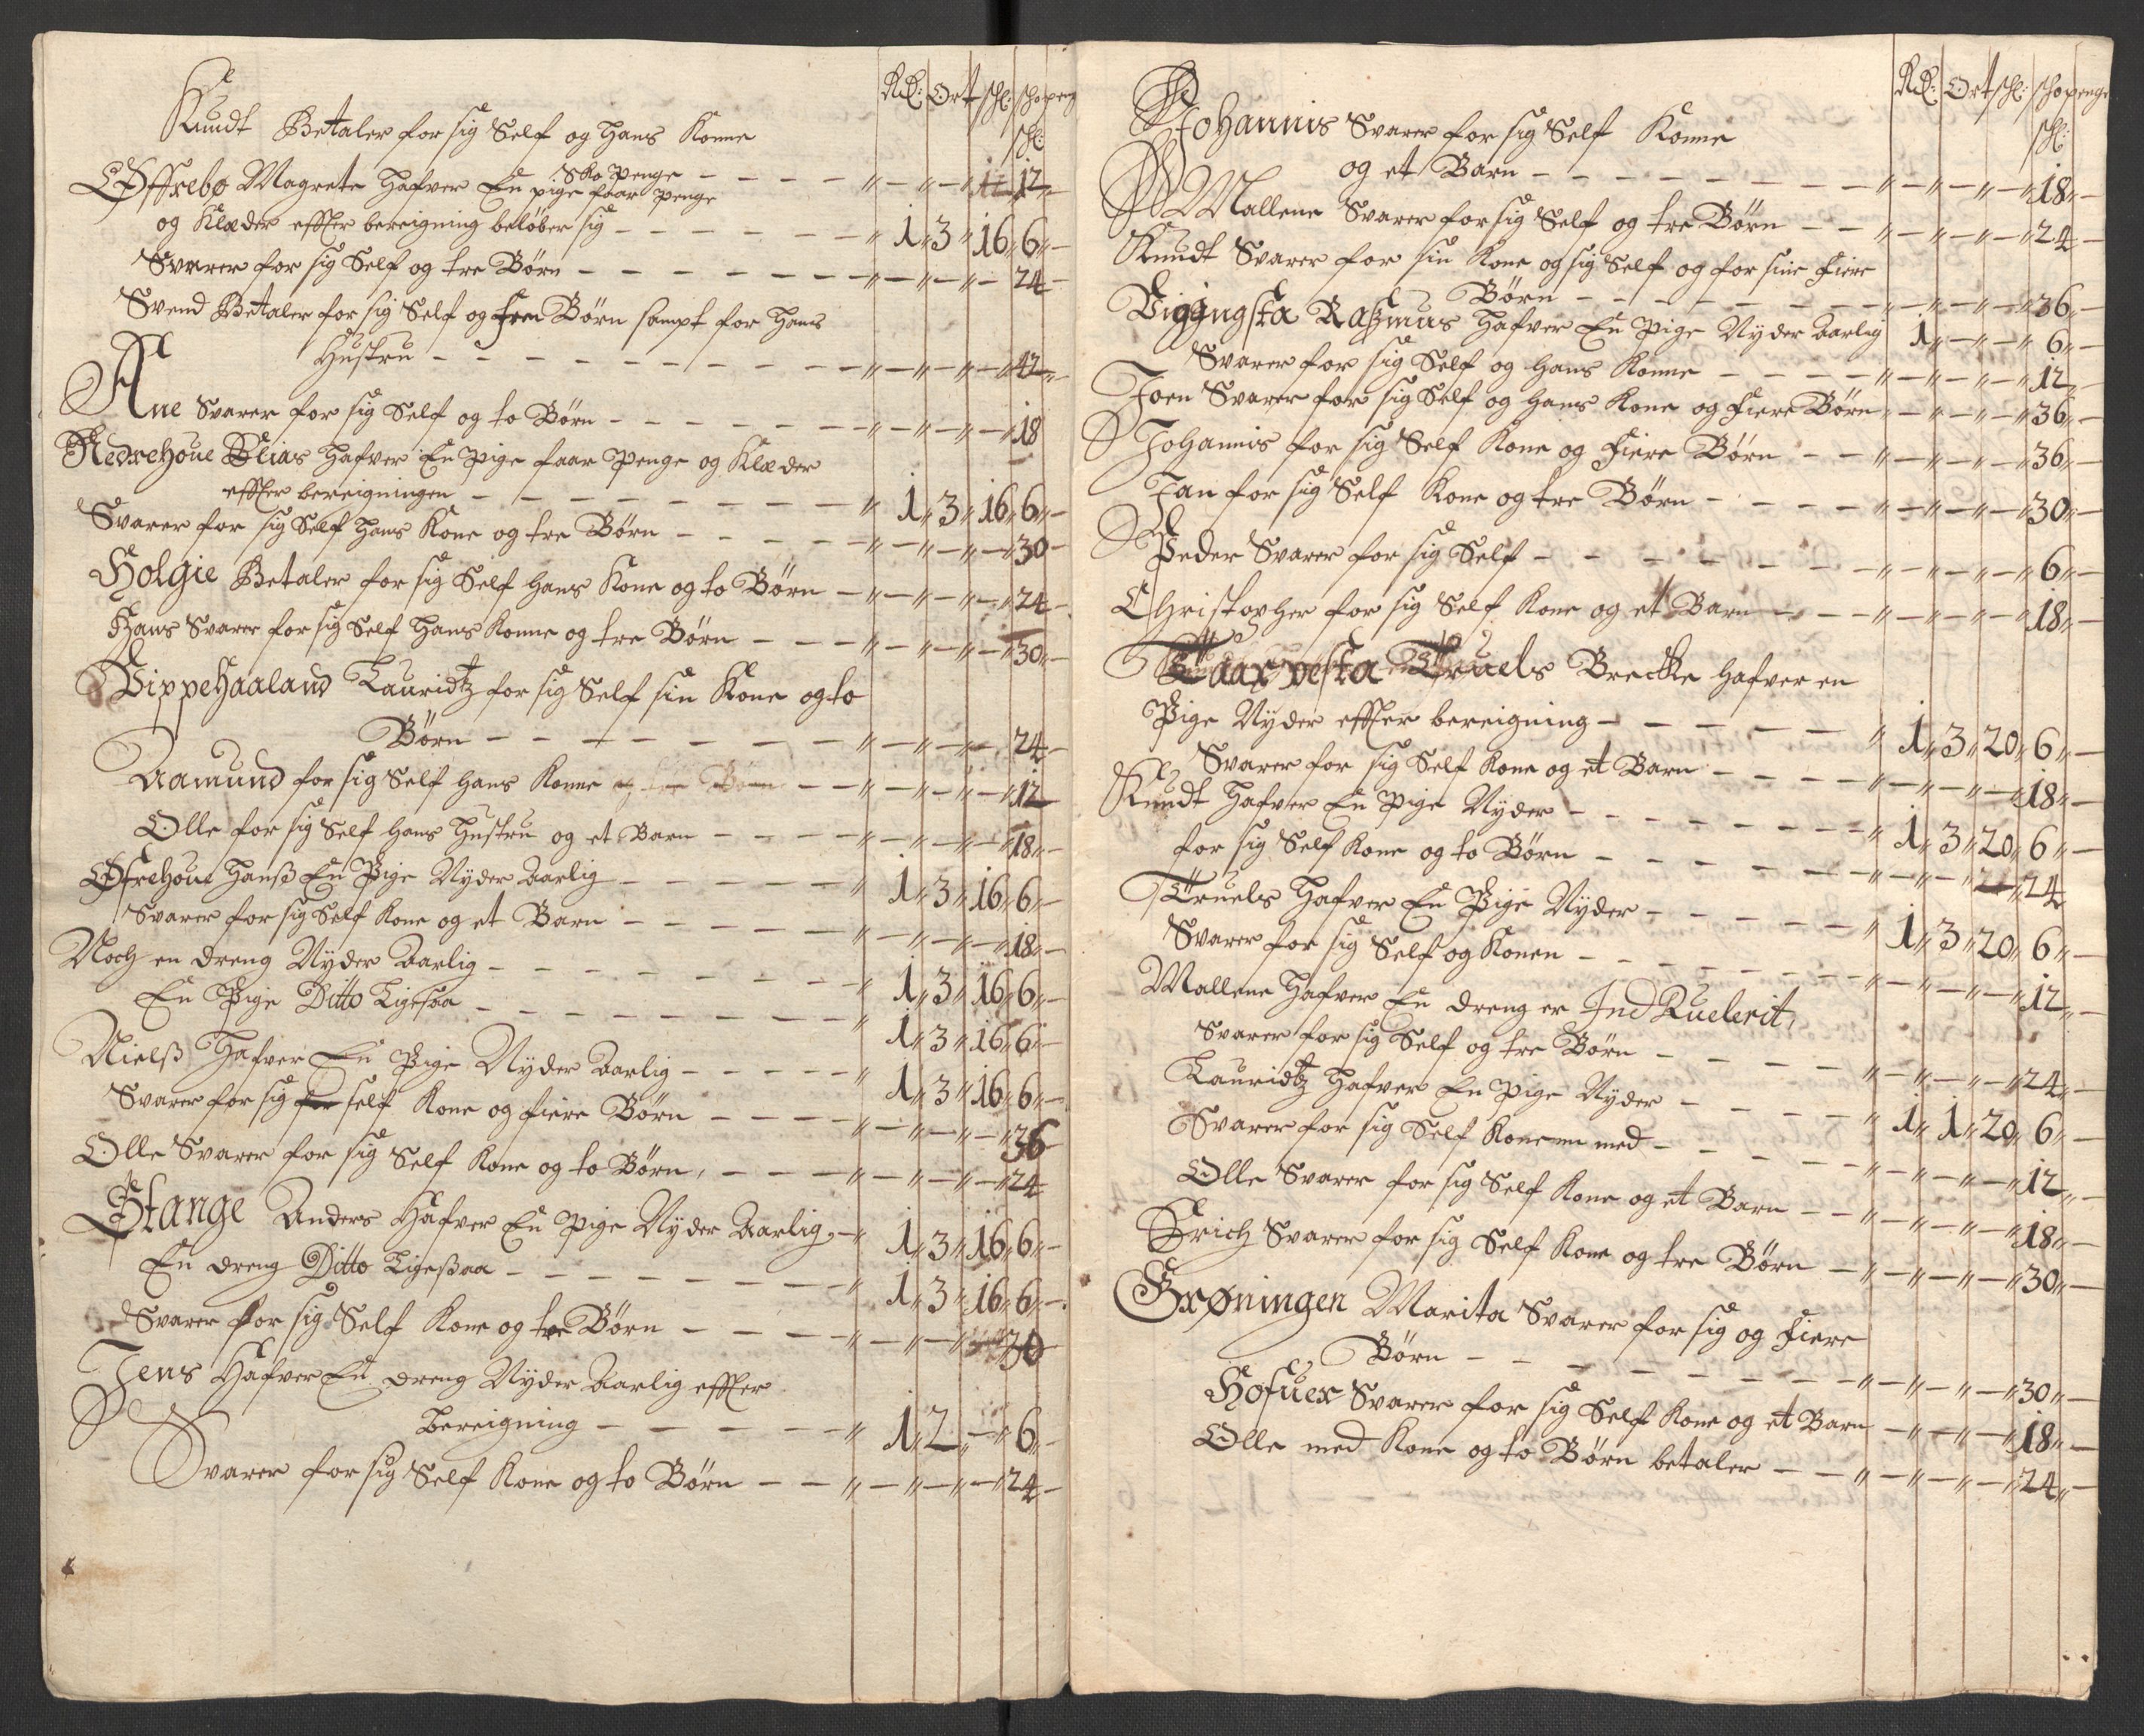 Rdl: Ort sl: skopenge
sl:
Knudt Betaler for sig Self og Hans Konne
Sko penge - - - " - " - " 12 -
Øffrebø Magrete Hafver En pige faar Penge
og Klæder effter bereigning beløber sig - - - " 1 " 3 " 16 " 6 " -
Svarer for sig Self og tre Børn - - - " - " - " - 24 -
Svend Betaler for sig Self og Børn sampt for Hans
Hustru - - - " - " - " - " 42 " -
Ane Svarer for sig Self og to Børn - - - " - " - " - " 18
Nedrehoue Elias Hafver En Pige faar Penge og Klæder
effter bereigningen - - - " 1 " 3 " 16 " 6 " -
Svarer for sig Self Hans Kone og tre Børn - - - " - " - " - " 30 -
Holgie Betaler for sig Self Hans Kone og to Børn - " - " - " - " 24 -
Hans Svarer for sig Self Hans Konne og tre Børn - - - " - " - " - " 30 " -
Vippehaaland Lauridtz for sig Self sin Kone og to
Børn - - - " - " - " - 24 -
Aamund for sig Self Hans Konne og tre Børn - - " - " - " - " 12
Olle for sig Self Hans Hustru og et Barn - - - " - " - " - " 18 " -
Øfrehoue Hanß En Pige Nyder Aarlig - - - " 1 " 3 " 16 " 6 " -
Svarer for sig Self Kone og et Barn - - - " - " - " - " 18 " -
Noch en dreng Nyder Aarlig - - - " 1 " 3 " 16 " 6 " -
En Pige Ditto Ligesaa - - - " 1 " 3 " 16 " 6 " -
Nielß Hafver En Pige Nyder Aarlig - - - " 1 " 3 " 16 " 6 " -
Svarer for sig for self Kone og fiere Børn - - - " - " - " - " 36
Olle Svarer for sig Self Kone og to Børn, - - - " - " - " - " 24
Stange Anders Hafver En Pige Nyder Aarlig - " 1 " 3 " 16 " 6 " -
En dreng Ditto Ligeßaa - - - " 1 " 3 " 16 " 6 " -
Svarer for sig Self Kone og tre Børn - - - " - " - " 30
Jens Hafver En dreng Nyder Aarlig effter
bereigning - - - " 1 " 2 " - " 6 " -
Svarer for sig Self Kone og to Børn - - " - " - " - " 24 -
Rdl: Ort sl: skopenge
sl:
Johannis Svarer for sig Self Konne
og et Barn - - - " - " - " - " 18 " -
Mallene Svarer for sig Self og tre Børn - - " - " - " - " 24 -
Knudt Svarer for sin Kone og sig Self og for sine Fiere
Børn - - - " - " - " - " 36 " -
Vigingsta Raßmus Hafver En Pige Nyder Aarlig 1 " - " - " 6 " -
Svarer for sig Self og Hans Konne - - - " - " - " - " 12 " -
Joen Svarer for sig Self og Hans Kone og Fiere Børn " - " - " - " 36 " -
Johannis for sig Self Kone og Fiere Børn - - " - " - " - " 36 " -
Jan for sig Self Kone og tre Børn - - - " - " - " - " 30 " -
Peder Svarer for sig Self - - - " - " - " - " 6 " -
Christopher for sig Self Kone og et Barn - - " - " - " - " 18 " -
Taarvesta Truels Brecke Hafver en
Pige Nyder effter bereigning - - - " 1 " 3 " 20 " 6 " -
Svarer for sig Self Kone og et Barn - - - " - " - " - " 18 " -
Knudt Hafver En Pige Nyder - - - " 1 " 3 " 20 " 6 " -
for sig Self Kone og to Børn - - - " - " - " 24
Truels Hafver En Pige Nyder - - - " 1 " 3 " 20 " 6 " -
Svarer for sig Self og Konen - - - " - " - " - " 12 " -
Mallene Hafver En dreng er Ind Ruelerit,
Svarer for sig Self og tre Børn - - - " - " - " - " 24 " -
Lauridtz Hafver En Pige Nyder - - - " 1 " 1 " 20 " 6 " -
Svarer for sig Self Konen med - - - " - " - " - " 12 " -
Olle Svarer for sig Self Kone og et Barn - - " - " - " - " 18 " -
Erich Svarer for sig Self Kone og tre Børn - " - " - " - " 30 " -
Grøningen Marita Svarer for sig og Fiere
Børn - - - " - " - " - " 30 " -
Hofuer Svarer for sig Self Kone og et Barn - " - " - " 18 " -
Olle med Kone og to Børn betaler - - " - " - " - " 24 " -